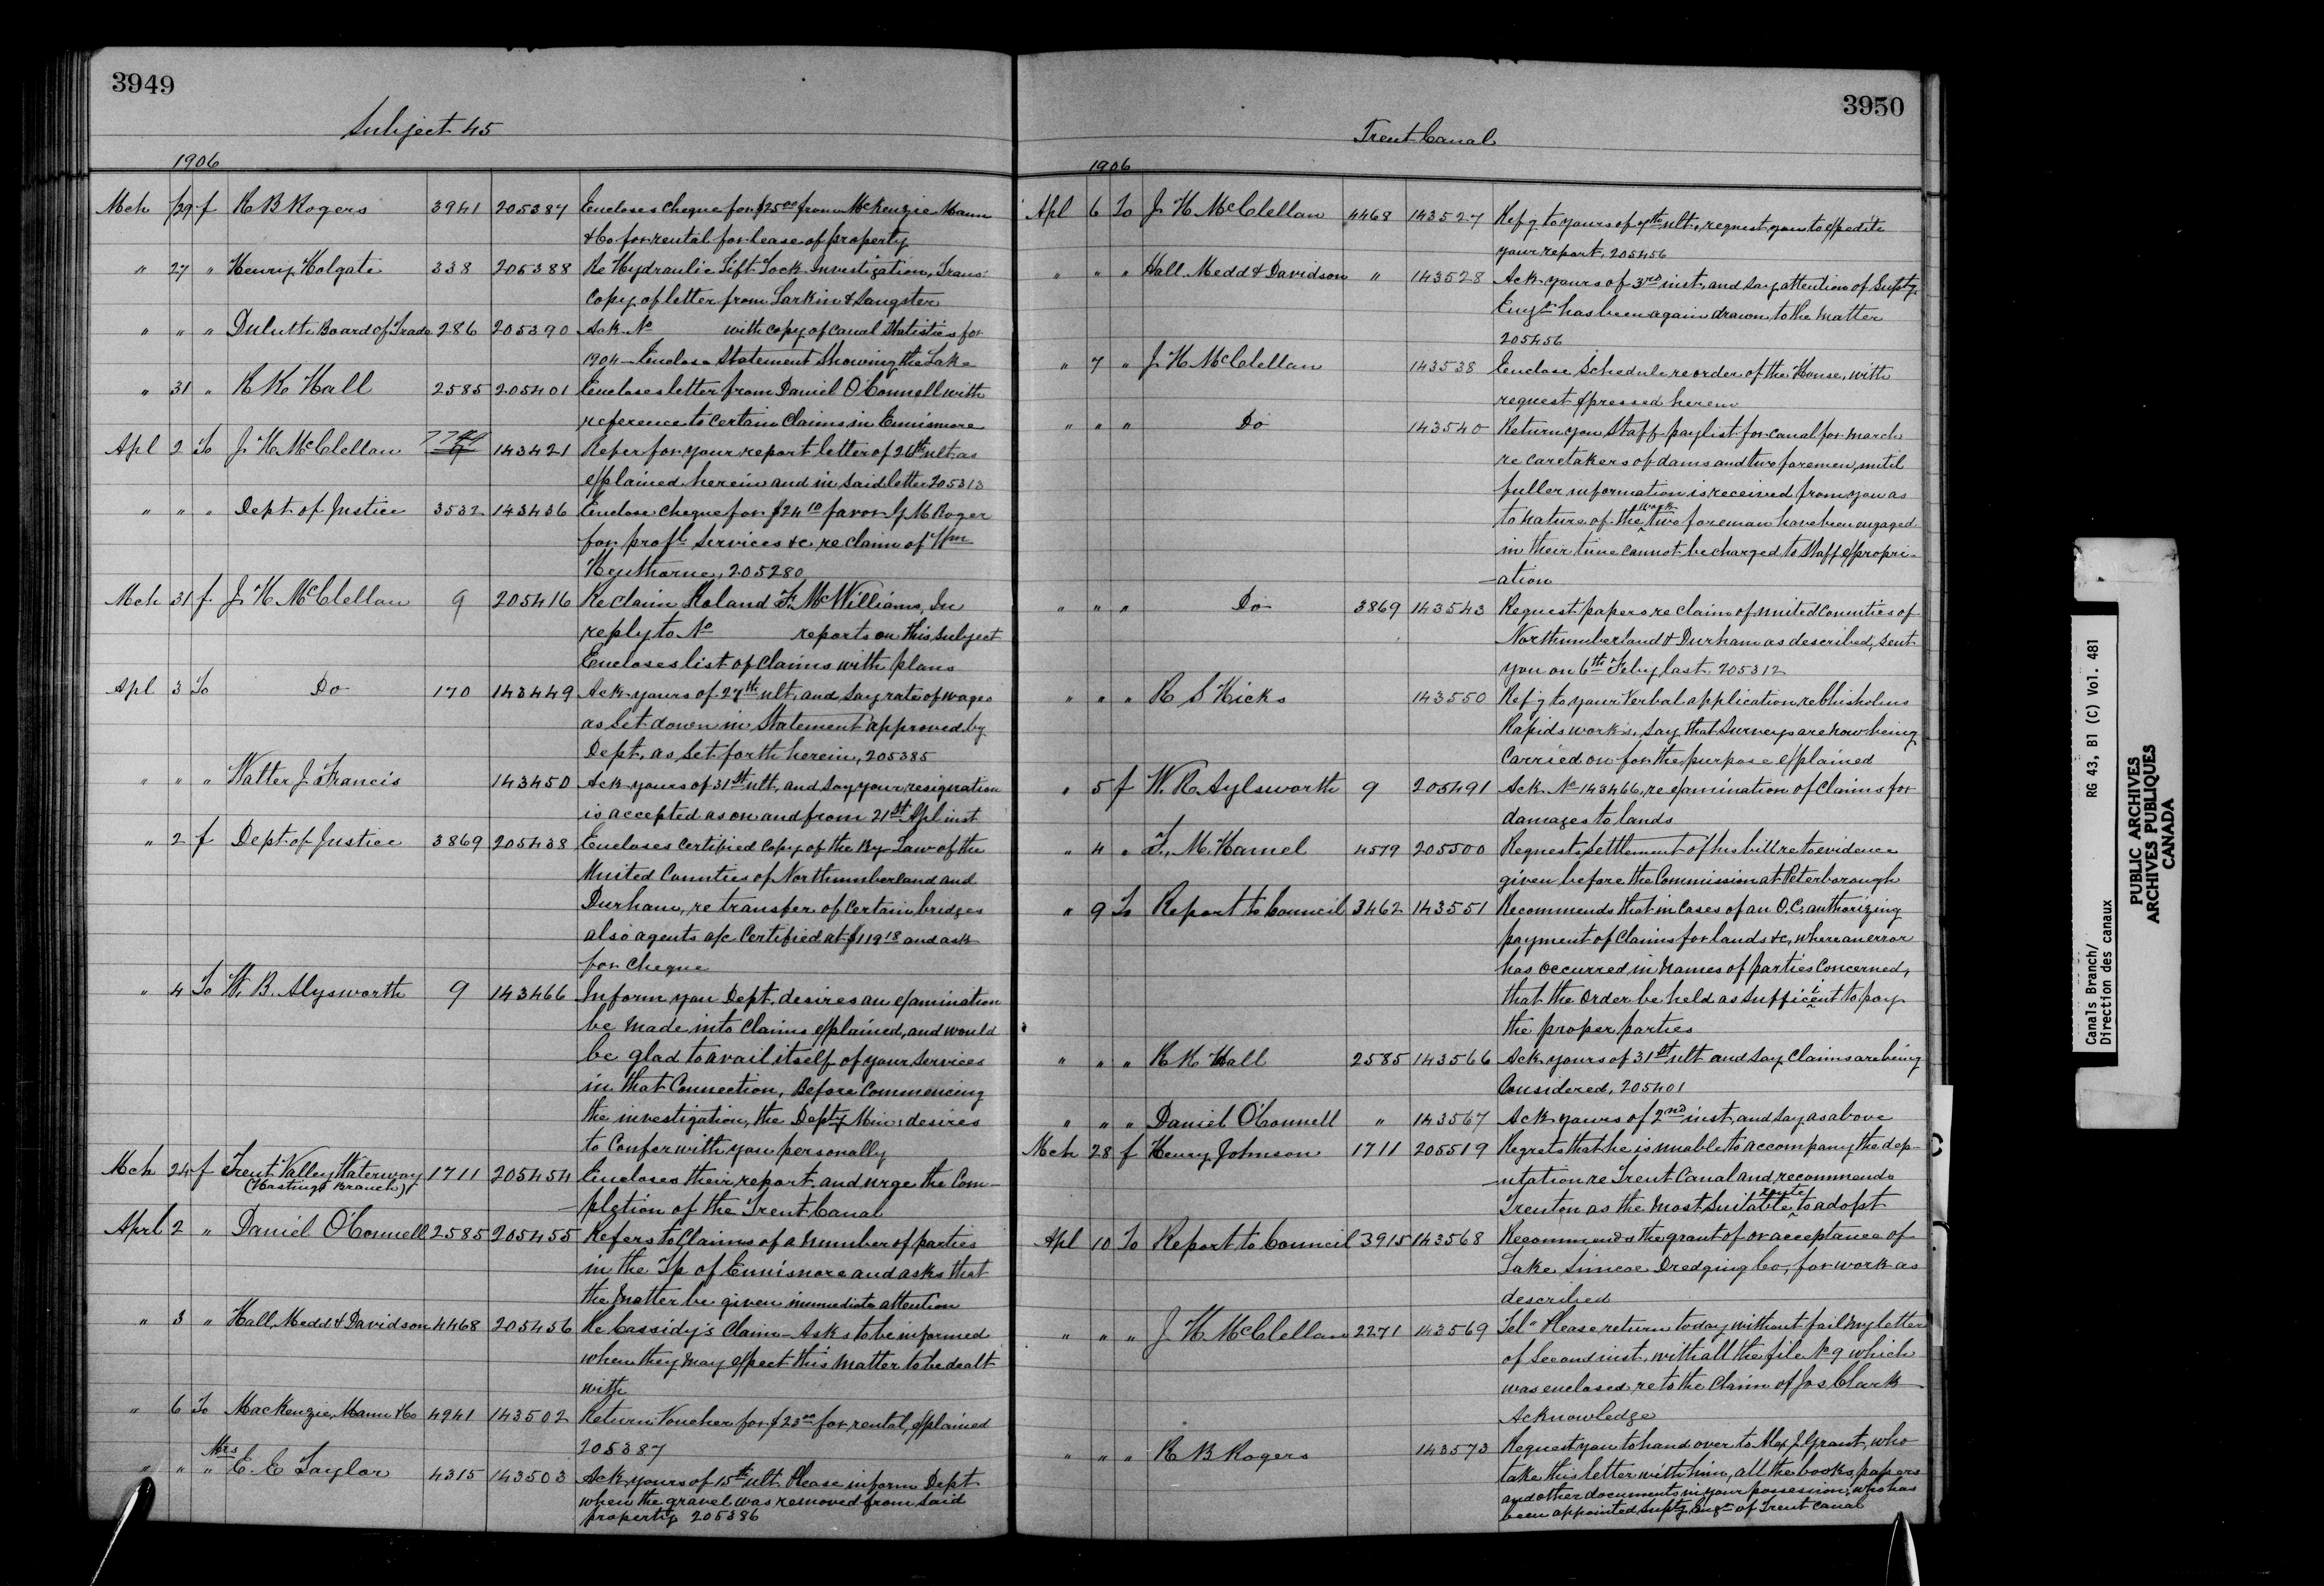 3949
Subject 45
1906
Mch 29 f R B Rogers 3941 205387 Encloses cheque for $25.00 from McKenzie Mann
& Co for rental for lease of property
" 27 " Henry Holgate 338 205388 Re Hydraulic Lift Lock Investigation, Trans:
Copy of letter from Larkin & Sangster
" " " Duluth Board of Trade 286 205390 Ack No with copy of Canal Statistics for
1904 - Enclose Statement Showing the Lake
" 31 " R R Hall 2585 205401 Encloses letter from Daniel O'Connell with
reference to certain Claims in Ennismore
Apl 2 To J. H. McClellan 143421 Refer for your report letter of 26th ult. as
explained herein and in said letter 205313
" " " Dept of Justice 3532 143436 Enclose cheque for $24.10 favor G M Roger
for profl Services &c re claim of Wm
Heythorne, 205280
Mch 31 f J. H. McClellan 9 205416 Re claim Roland F. McWilliams, In
reply to No reports on this subject
Encloses list of Claims with plans
Apl 3 To Do 170 143449 Ack yours of 27th ult. and say rate of wages
as set down in Statement approved by
Dept. as set forth herein, 205385
" " " Walter J. Francis 143450 Ack yours of 31st ult. and say your resignation
is accepted as on and from 21st Apl inst
" 2 f Dept of Justice 3869 205438 Encloses certified copy of the By-Law of the
United Counties of Northumberland and
Durham, re transfer of certain bridges
also agents a/c Certified at $119.18 and ask
for cheque
" 4 To W. B. Alysworth 9 143466 Inform you Dept. desires an examination
be made into Claims explained, and would
be glad to avail itself of your Services
in that Connection, Before Commencing
the investigation, the Depty Min: desires
to Confer with you personally
Mch 24 f Trent Valley Waterway 1711 205454 Encloses their report and urge the Com-
(Hastings Branch)
-pletion of the Trent Canal
Aprl 2 " Daniel O'Connell 2585 205455 Refers to Claims of a number of parties
in the Tp of Ennismore and asks that
the matter be given immediate attention
" 3 " Hall, Medd & Davidson 4468 205456 Re Cassidy's Claim - Asks to be informed
when they may expect this matter to be dealt
with
" 6 To MacKenzie, Mann & Co 4941 143502 Return Voucher for $25.00 for rental, explained
205387
" " " Mrs E. E Taylor 4315 143503 Ack yours of 15th ult. Please inform Dept
when the gravel was removed from said
property 205386
3950
Trent Canal
1906
Apl 6 To J. H. McClellan 4468 143527 Refg to yours of 7th ult. request you to expedite
your report, 205456
" " " Hall Medd & Davidson " 143528 Ack yours of 3rd inst, and say attention of Supty
Engr has been again drawn to the matter
205456
" 7 " J H McClellan 143538 Enclose Schedule re order of the House, with
request expressed herein
" " " Do 143540 Return you Staff paylist for canal for March
re caretakers of dams and two foremen, until
fuller information is received from you as
to nature of the work two foreman have been engaged
in their time cannot be charged to Staff appropri-
-ation
" " " Do 3869 143543 Request papers re claim of united Counties of
Northumberland & Durham as described, sent
you on 6th Feby last, 205312
" " " R S Hicks 143550 Refg to your Verbal application re Chisholms
Rapids works, say that Surveys are now being
carried on for the purpose explained
" 5 f W. R Aylsworth 9 205491 Ack No 143466, re examination of Claims for
damages to lands
" 4 " L. M. Hamel 4579 205500 Requests settlement of his bill re to evidence
given before the Commission at Peterborough
" 9 To Report to Council 3462 143551 Recommends that in Cases of an O.C. authorizing
payment of Claims for lands &c, where an error
has occurred in names of parties Concerned,
that the Order be held as sufficient to pay
the proper parties
" " " R R Hall 2585 143566 Ack yours of 31st ult and say Claims are being
Considered, 205401
" " " Daniel O'Connell " 143567 Ack yours of 2nd inst, and say as above
Mch 28 f Henry Johnson 1711 205519 Regrets that he is unable to accompany the dep-
-utation re Trent Canal and recommends
Trenton as the most suitable route to adopt
Apl 10 To Report to Council 3915 143568 Recommends the grant of or acceptance of
Lake Simcoe Dredging Co, for work as
described
" " " J H McClellan 2271 143569 Tel" Please return today without fail my letter
of second inst. with all the file No 9 which
was enclosed re to the Claim of Jos Clark
Acknowledge
" " " R B Rogers 143573 Request you to hand over to Alex J. Grant, who
take this letter with him, all the books, papers
and other documents in your possession, who has
been appointed Supty Engr of Trent Canal
Canals Branch/ RG 43, B1 (C) Vol. 481
Direction des canaux
PUBLIC ARCHIVES
ARCHIVES PUBLIQUES
CANADA